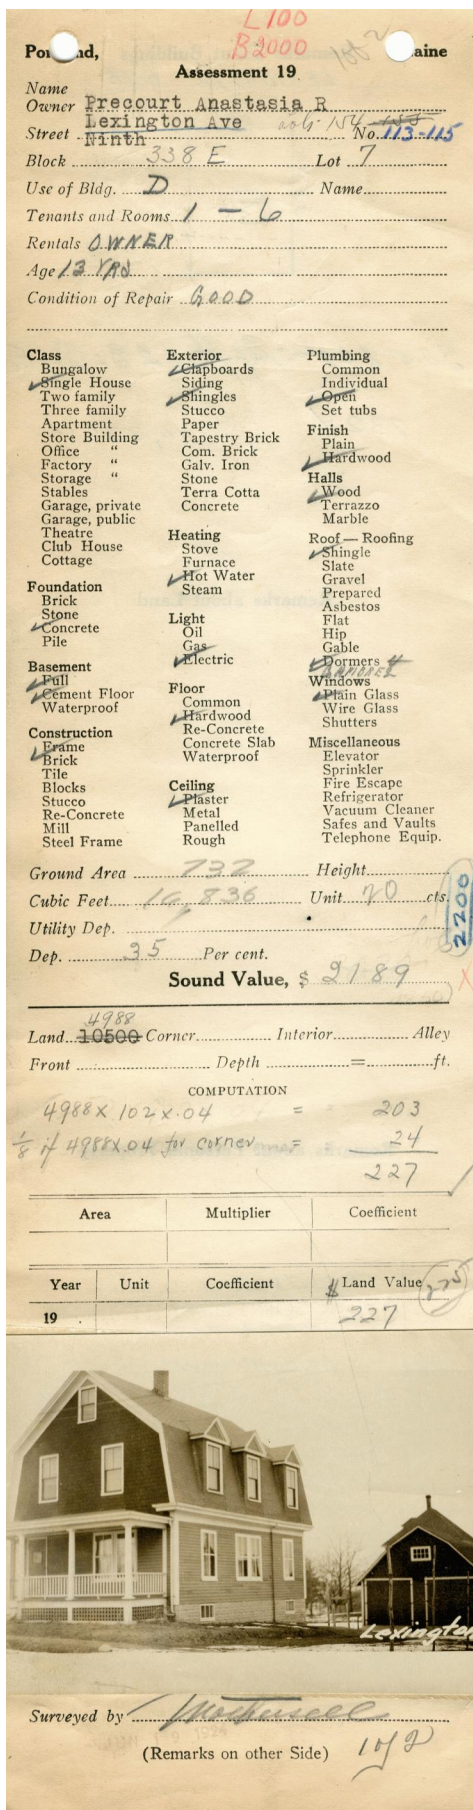 L100
B2000
1 of 2
Portland, Maine
Assessment 19
Name
Owner Precourt Anastasia R
Lexington Ave
Street Ninth No. 113-115
Block 338 E Lot 7
Use of Bldg. D Name
Tenants and Rooms 1 - 6
Rentals OWNER
Age 13 YRS
Condition of Repair GOOD
Class
Bungalow
Single House
Two family
Three family
Apartment
Store Building
Office "
Factory "
Storage "
Stables
Garage, private
Garage, public
Theatre
Club House
Cottage
Foundation
Brick
Stone
Concrete
Pile
Basement
Full
Cement Floor
Waterproof
Construction
Frame
Brick
Tile
Blocks
Stucco
Re-Concrete
Mill
Steel Frame
Exterior
Clapboards
Siding
Shingles
Stucco
Paper
Tapestry Brick
Com. Brick
Galv. Iron
Stone
Terra Cotta
Concrete
Heating
Stove
Furnace
Hot Water
Steam
Light
Oil
Gas
Electric
Floor
Common
Hardwood
Re-Concrete
Concrete Slab
Waterproof
Ceiling
Plaster
Metal
Panelled
Rough
Plumbing
Common
Individual
Open
Set tubs
Finish
Plain
Hardwood
Halls
Wood
Terrazzo
Marble
Roof — Roofing
Shingle
Slate
Gravel
Prepared
Asbestos
Flat
Hip
Gable
Dormers 4
GAMBREL
Windows
Plain Glass
Wire Glass
Shutters
Miscellaneous
Elevator
Sprinkler
Fire Escape
Refrigerator
Vacuum Cleaner
Safes and Vaults
Telephone Equip.
Ground Area 732 Height
Cubic Feet 16,836 Unit 20 cts.
2200
Utility Dep.
Dep. 35 Per cent.
Sound Value, $ 2189
4988
Land 10500 Corner Interior Alley
Front Depth = ft.
COMPUTATION
4988 X 102 X .04 = 203
1/8 of 4988 X .04 for corner = 24
227
Area Multiplier Coefficient
Year Unit Coefficient $ Land Value 225
19 227
Lexington
Surveyed by
(Remarks on other Side) 1 of 2